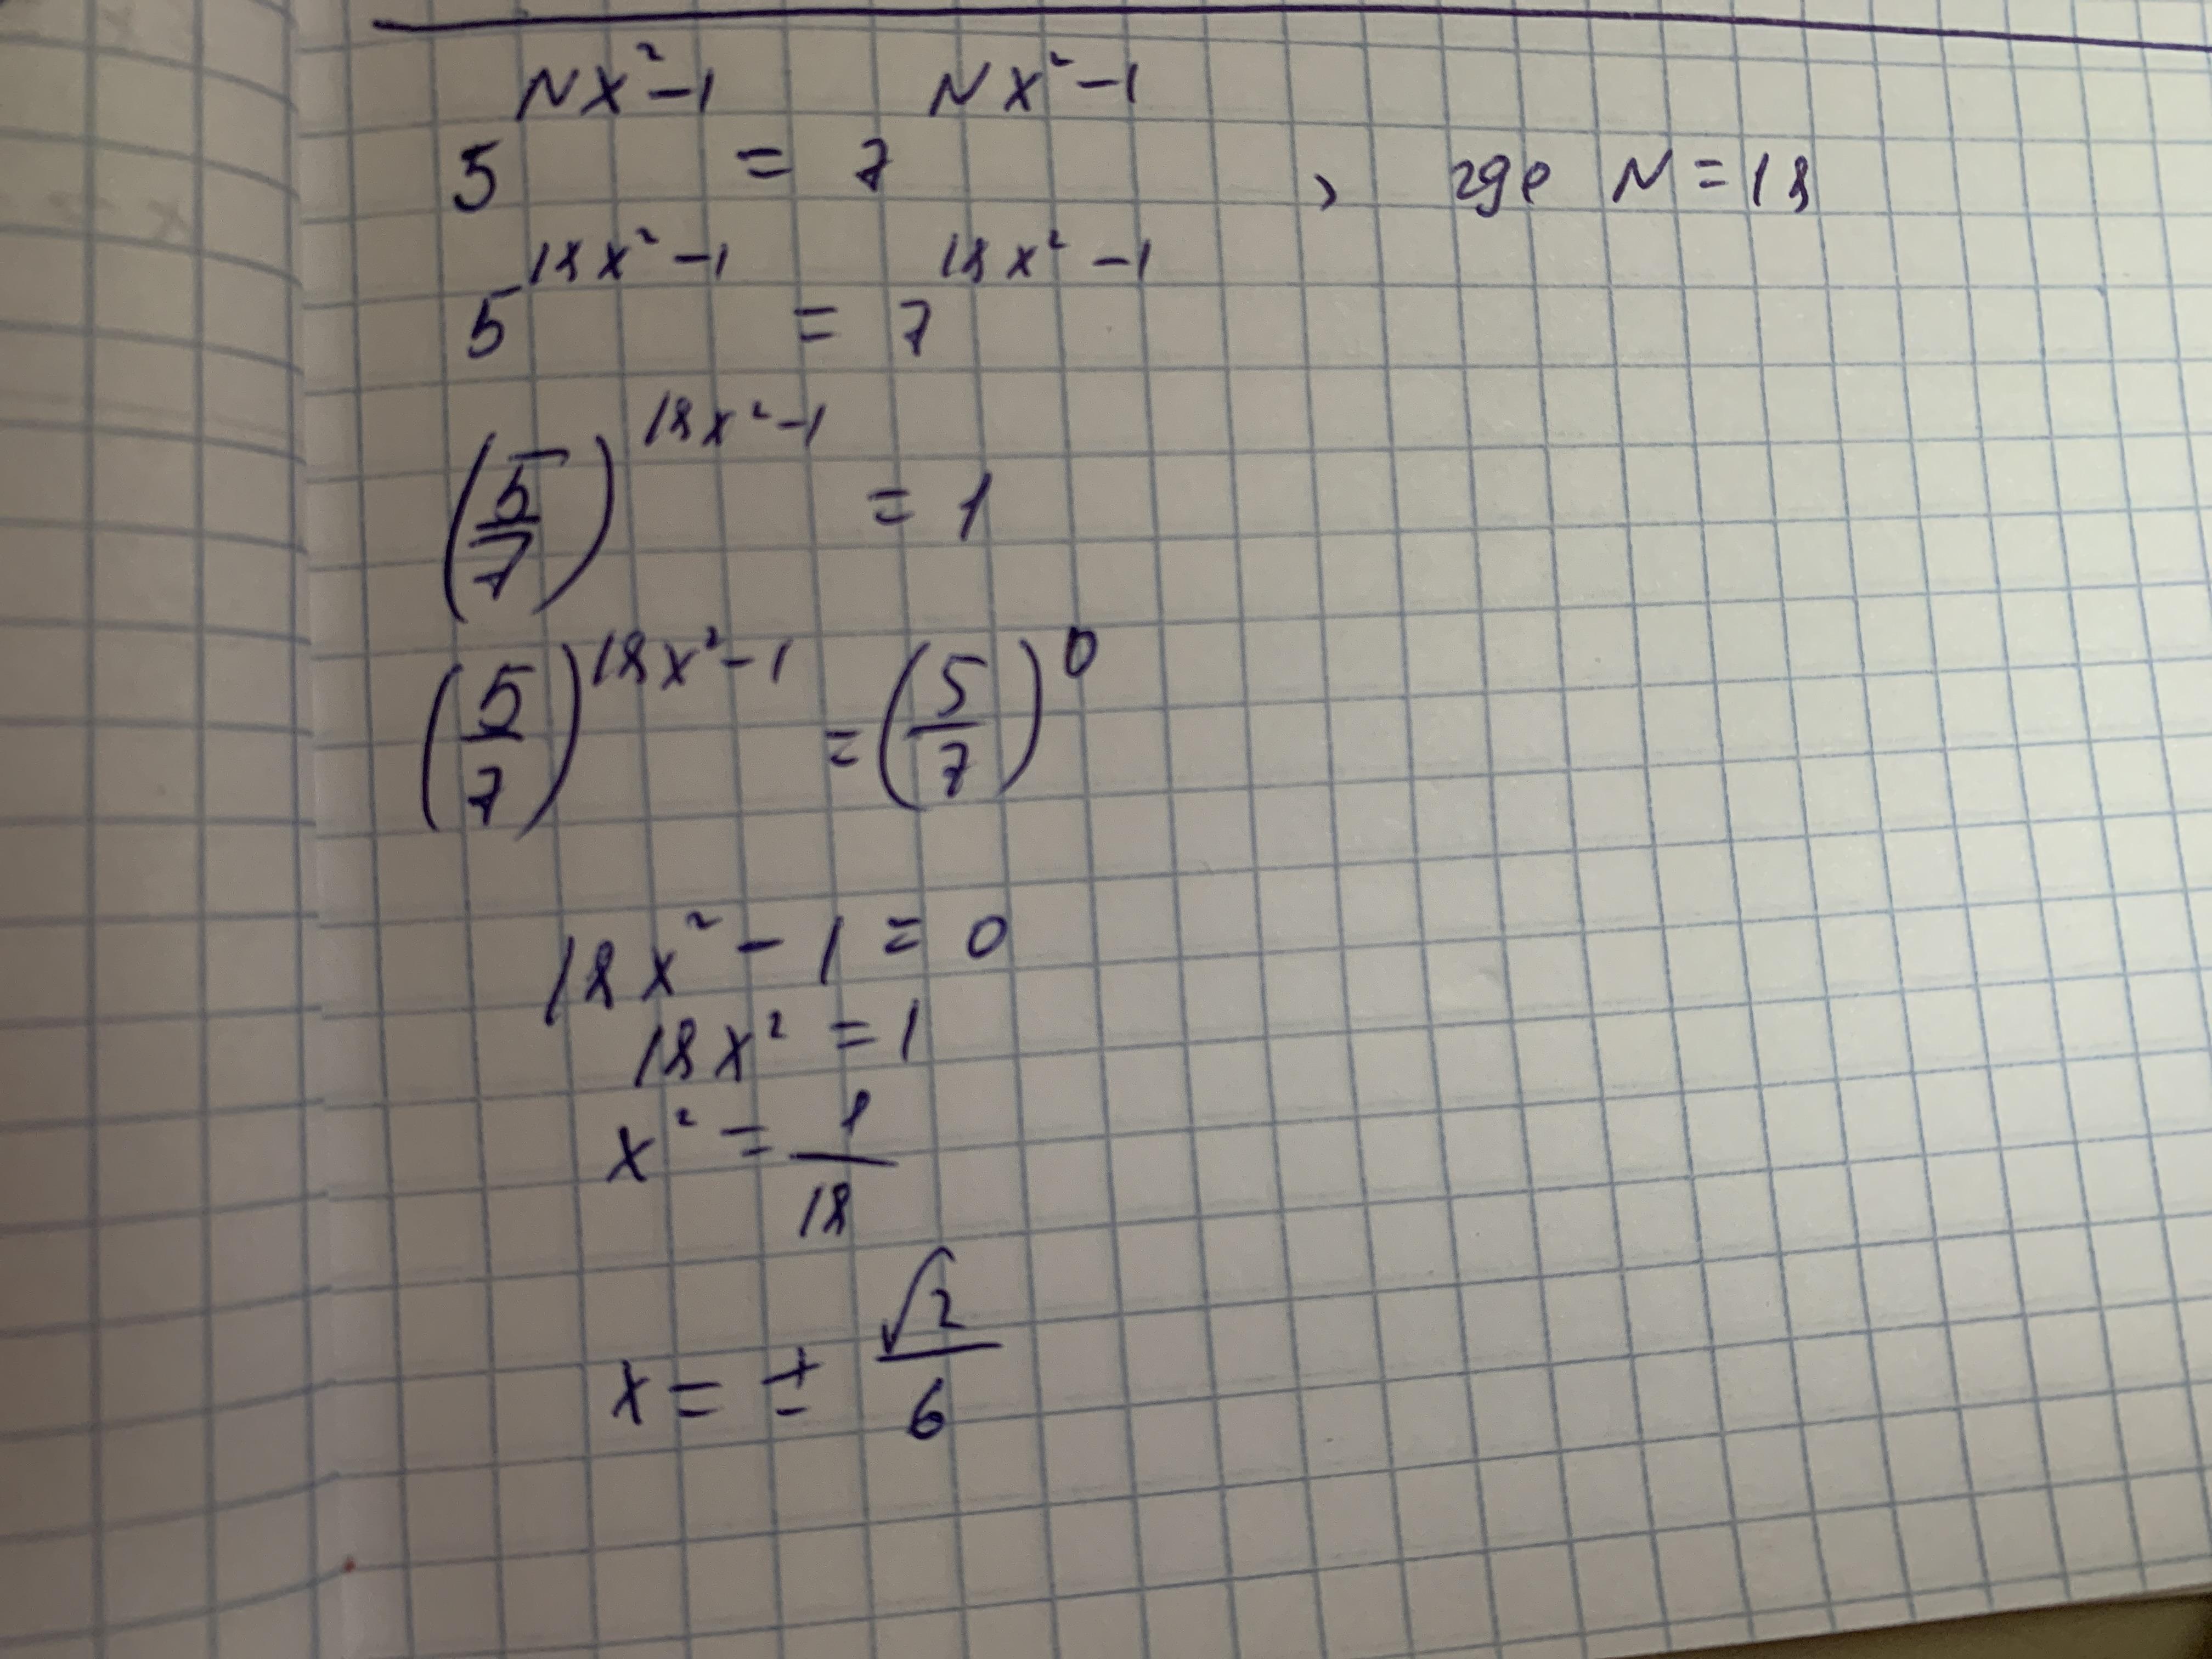 5^{Nx²-1} = 7^{Nx²-1} , где N=18
5^{18x²-1} = 7^{18x²-1}
(5/7)^{18x²-1} = 1
(5/7)^{18x²-1} = (5/7)^0
18x² - 1 = 0
18x² = 1
x² = 1/18
x = ± √2/6